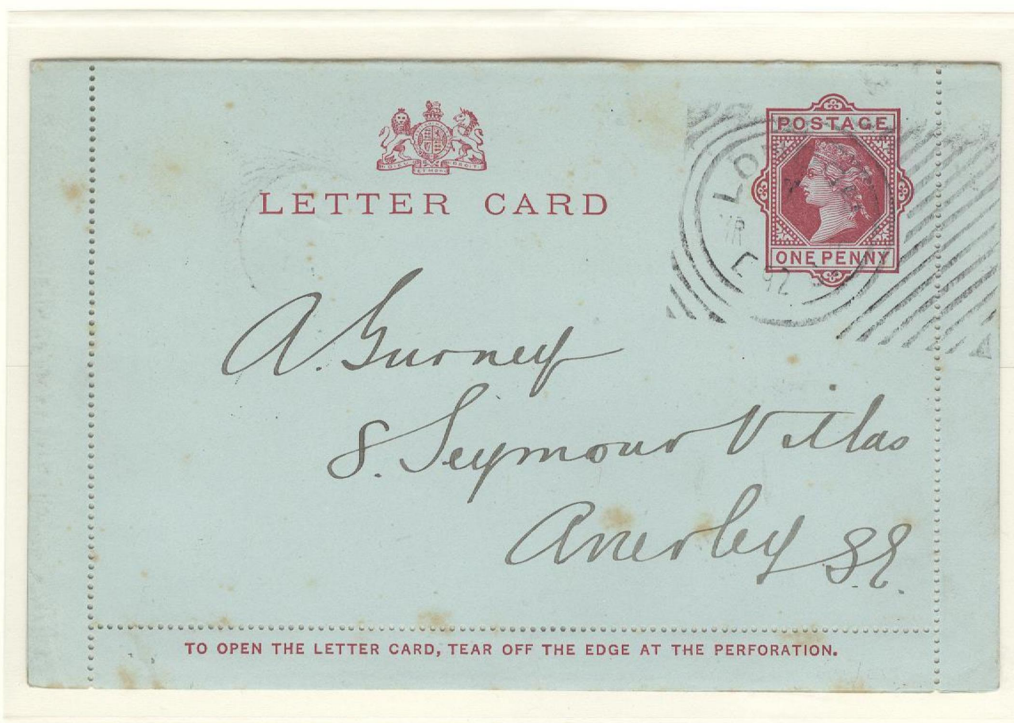 POSTAGE
LETTER CARD
ONE PENNY
92
A. Gurney
8. Seymour Villas
Anerley S.E.
TO OPEN THE LETTER CARD, TEAR OFF THE EDGE AT THE PERFORATION.